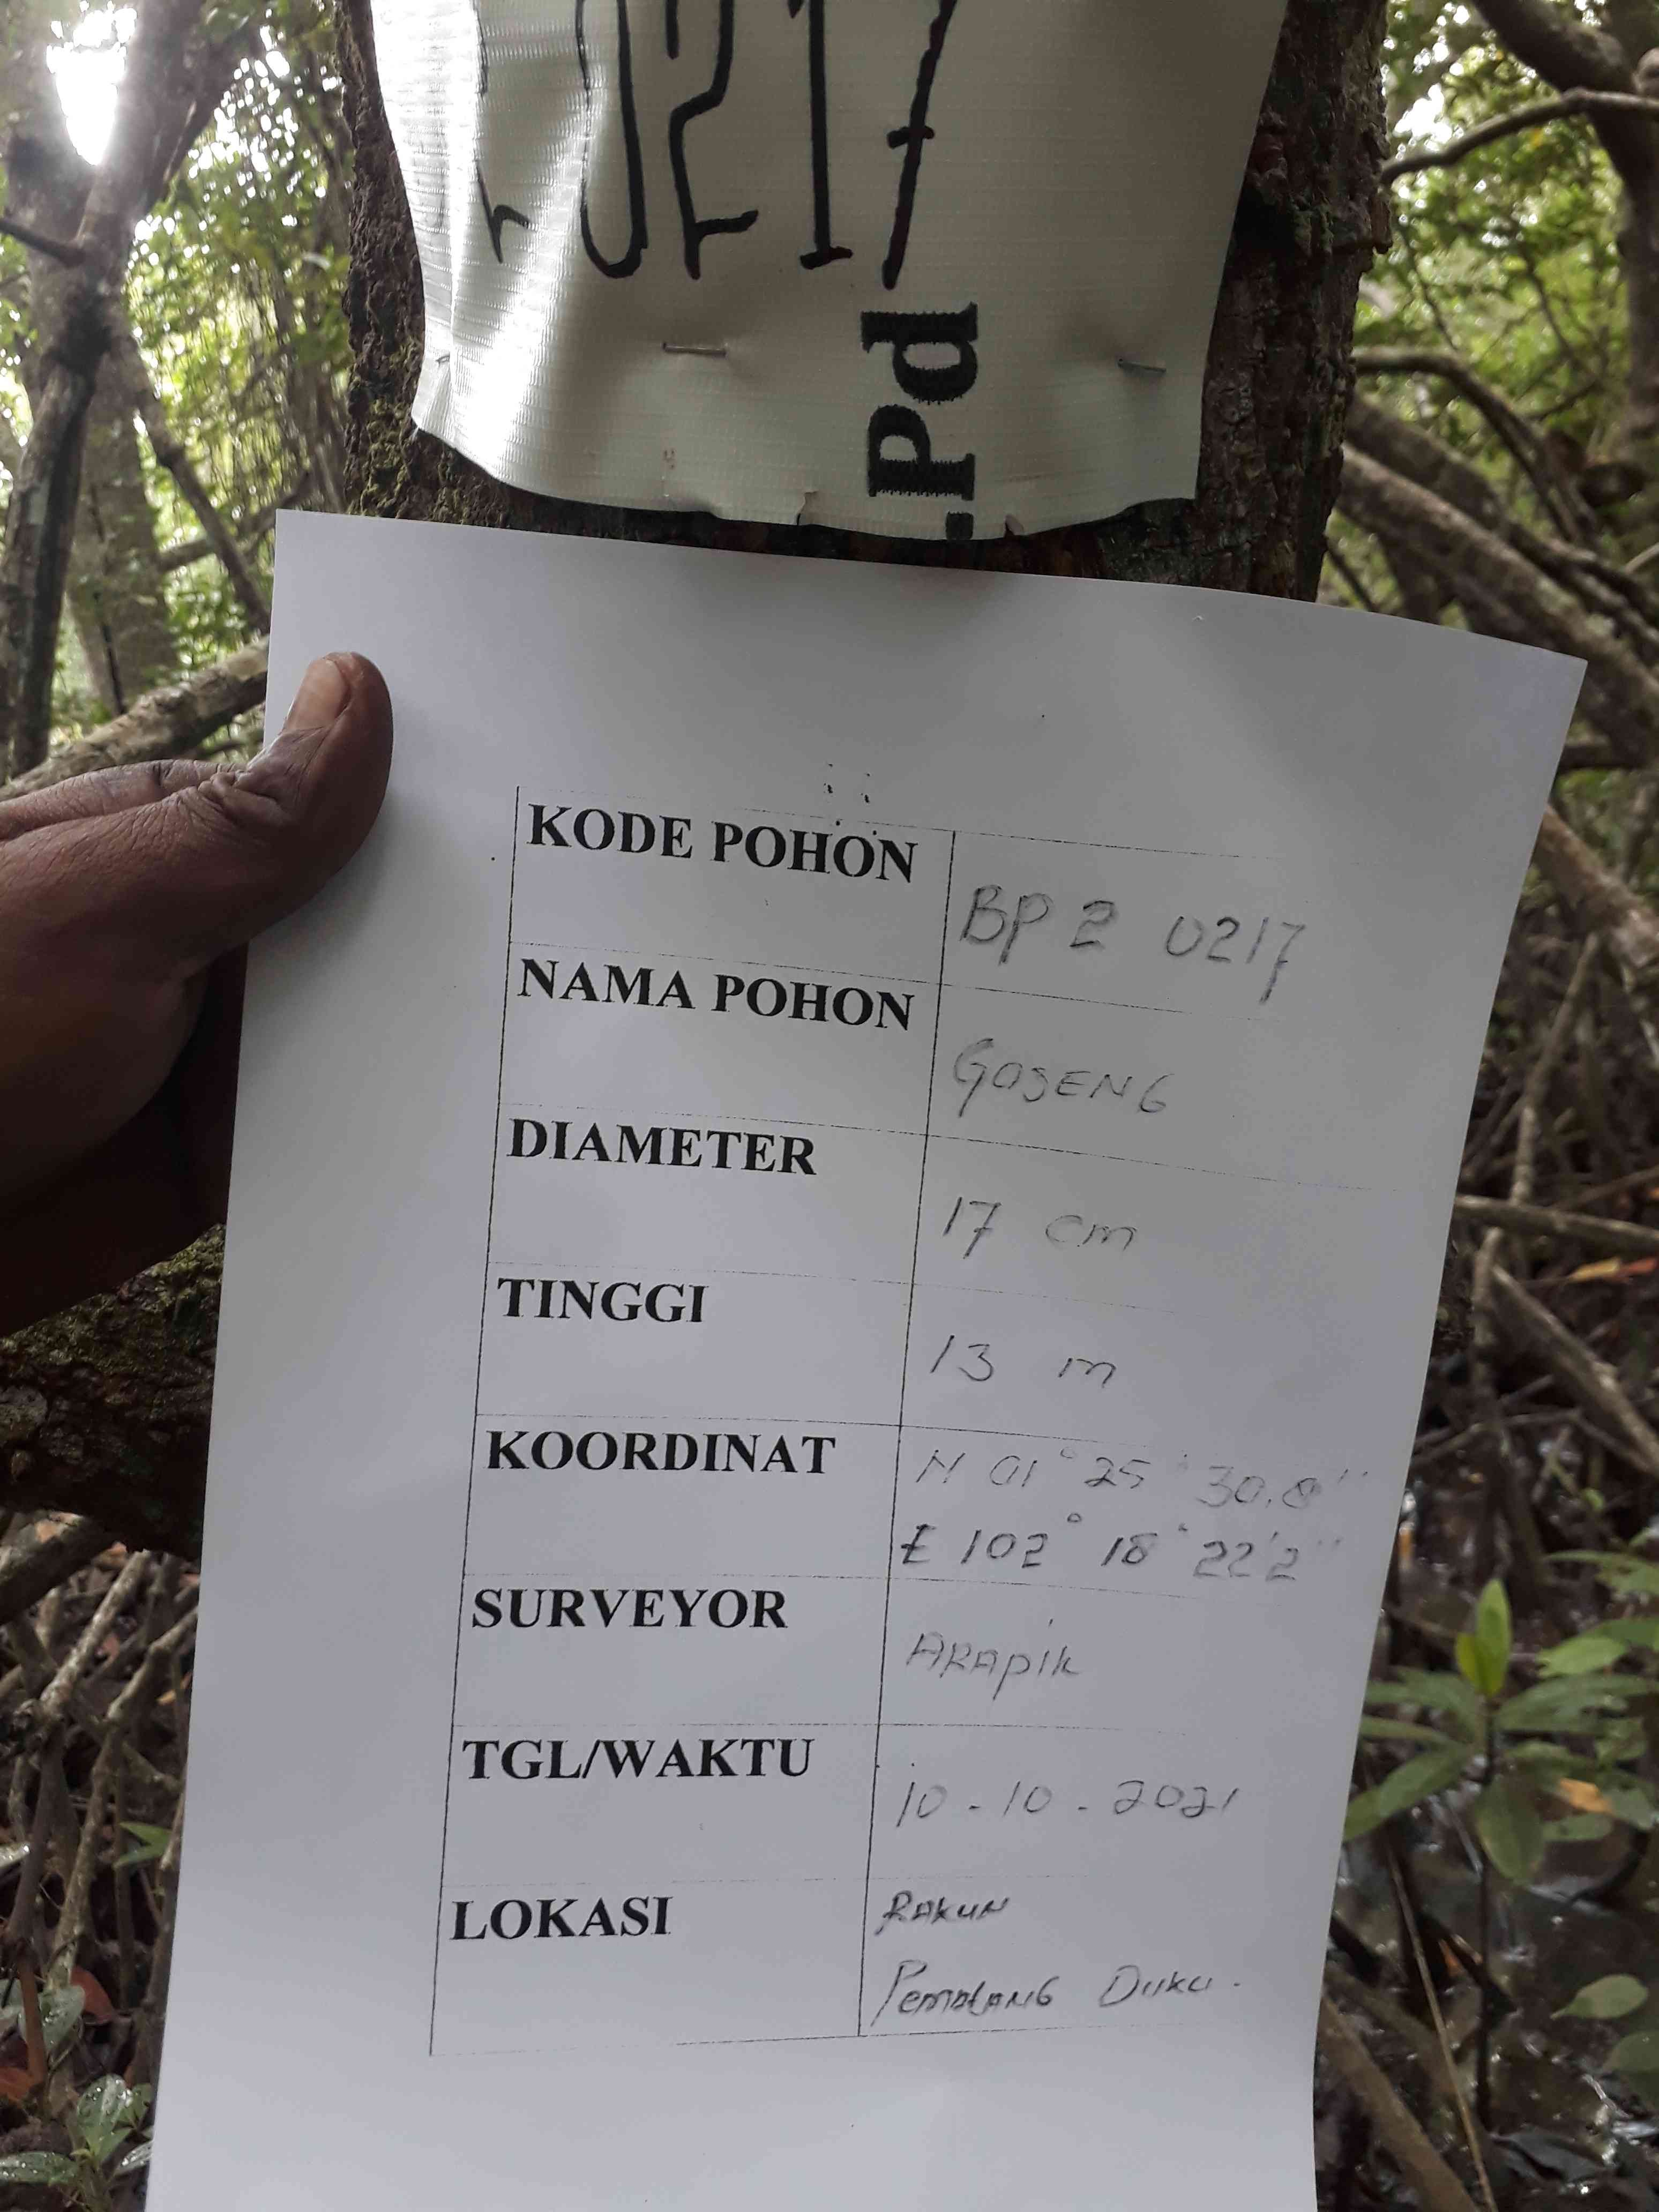 0217
.Pd
KODE POHON BP 2 0217
NAMA POHON GOSENG
DIAMETER 17 cm
TINGGI 13 m
KOORDINAT N 01° 25' 30.8"
E 102° 18' 22'2"
SURVEYOR ARAPIK
TGL/WAKTU 10-10-2021
LOKASI RAKUN
PEMATANG DUKU.